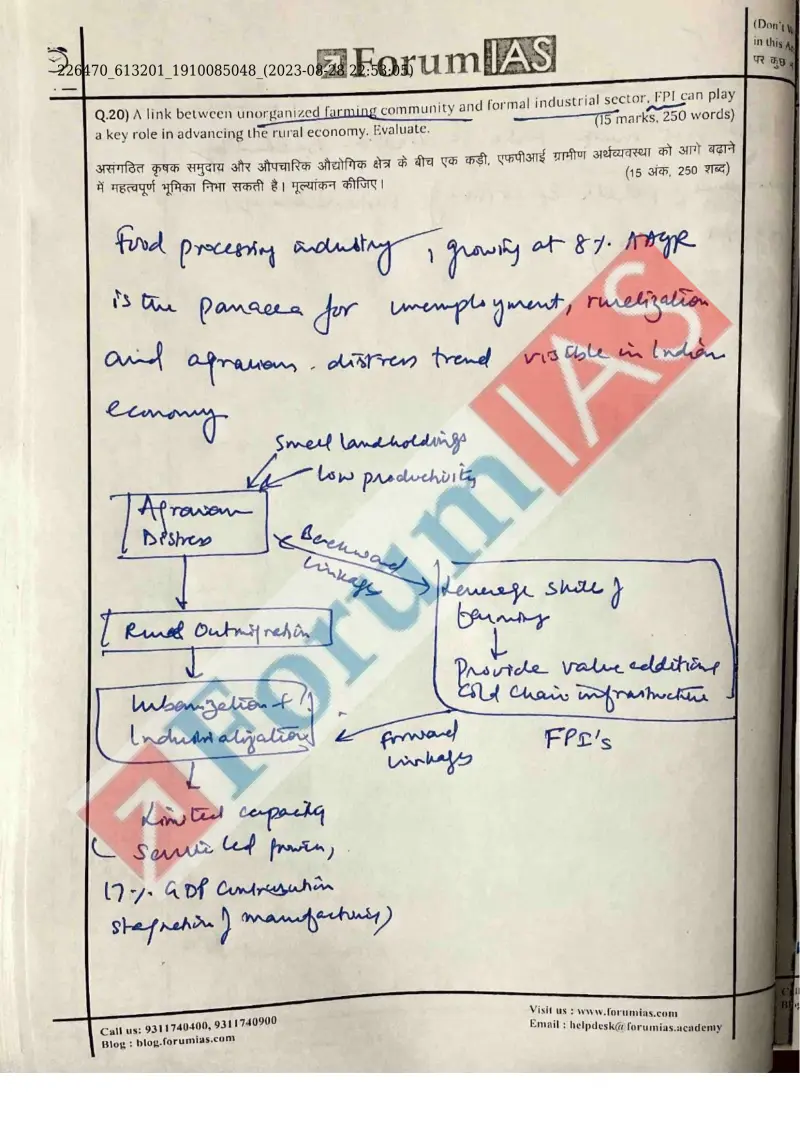 ForumIAS
226470_613201_1910085048_(2023-08-28 22:53:05)
(Don't
in this
पर कुछ
Q.20) A link between unorganized farming community and formal industrial sector, FPI can play
(15 marks, 250 words)
a key role in advancing the rural economy. Evaluate.
असंगठित कृषक समुदाय और औपचारिक औद्योगिक क्षेत्र के बीच एक कड़ी, एफपीआई ग्रामीण अर्थव्यवस्था को आगे बढ़ाने
में महत्वपूर्ण भूमिका निभा सकती है। मूल्यांकन कीजिए।
(15 अंक, 250 शब्द)
Food processing industry, growing at 8% AAGR
is the panacea for unemployment, ruralization
and agrarian distress trend visible in Indian
economy
Small landholdings
low productivity
Agrarian
Distress
Backward
linkages
Leverage skill of
farming
Rural Outmigration
Provide value addition
Cold chain infrastructure
Urbanization &
Industrialization
forward
linkages
FPI's
Limited capacity
(Service led growth,
17% GDP contribution
stagnation of manufacturing)
ForumIAS
Call us: 9311740400, 9311740900
Blog : blog.forumias.com
Visit us : www.forumias.com
Email : helpdesk@forumias.academy